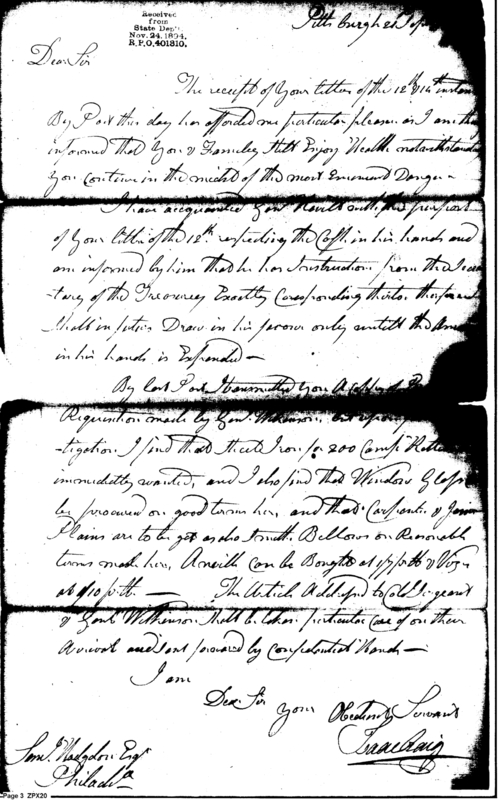 Received
from
State Dep't
Nov. 24, 1894.
R.P.O. 401310.
Pittsburgh 21 Sept
Dear Sir
The receipt of Your letters of the 12th & 14th instant
By Post this day has afforded me particular pleasure as I am
informed that You & Familey Still Enjoy Health notwithstanding
You Continue in the midst of the most Emenent Danger -
I have acequanted Genl Nevill with the purport
of Your letter of the 12th respecting the Cash in his hands and
am informed by him that he has Instructions from the Secre
tary of the Treasurey Exactly Coresponding thereto, therefore
Shall in future Draw in his favour only untill the Amount
in his hands is Expended -
By last Post I transmitted You
Requisition made by Genl Wilkinson,
-tigation I find that Sheet Iron for 200 Camp Kettles
immedietly wanted, and I also find that Window Glass
be procured on good terms here, and that Carpenters & Joiners
Plains are to be got as also Smith Bellows on Reasonable
terms made here, Anvills Can be Bought at 1/7 pr lb & Vices
at 1/10 pr lb. - The Article Addresed to Cold Sargent
& Genl Wilkinson Shall be taken particular Care of on their
Arrival and Sent forward by Confidential Hands -
I am
Dear Sir
Your Obedient Servant
Isaac Craig
Saml Hodgdon Esqr
Philada
Page 3 ZPX20